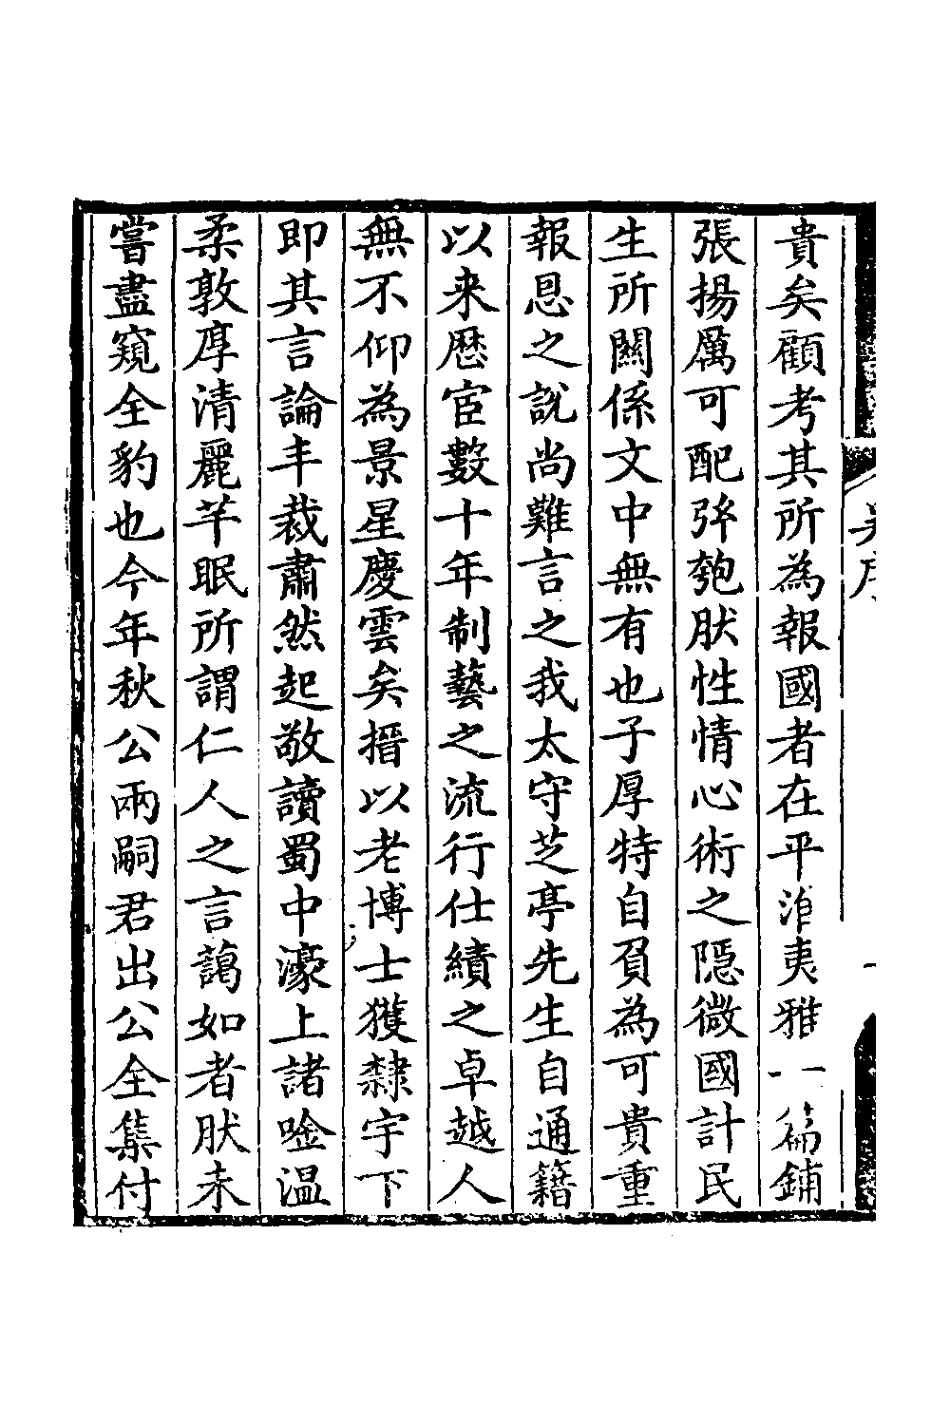 貴矣顧考其所為報國者在平淮夷雅一篇鋪
張揚厲可配弥匏肰性情心術之隠微國計民
生所關係文中無有也子厚特自負為可貴重
報恩之說尚難言之我太守芝亭先生自通籍
以来歴宦數十年制藝之流行仕績之卓越人
無不仰為景星慶雲矣搢以老博士獲隸宇下
即其言論丰裁肅然起敬讀蜀中濠上諸唫温
柔敦厚清麗芊眠所謂仁人之言藹如者肰未
嘗盡窺全豹也今年秋公兩嗣君出公全集付